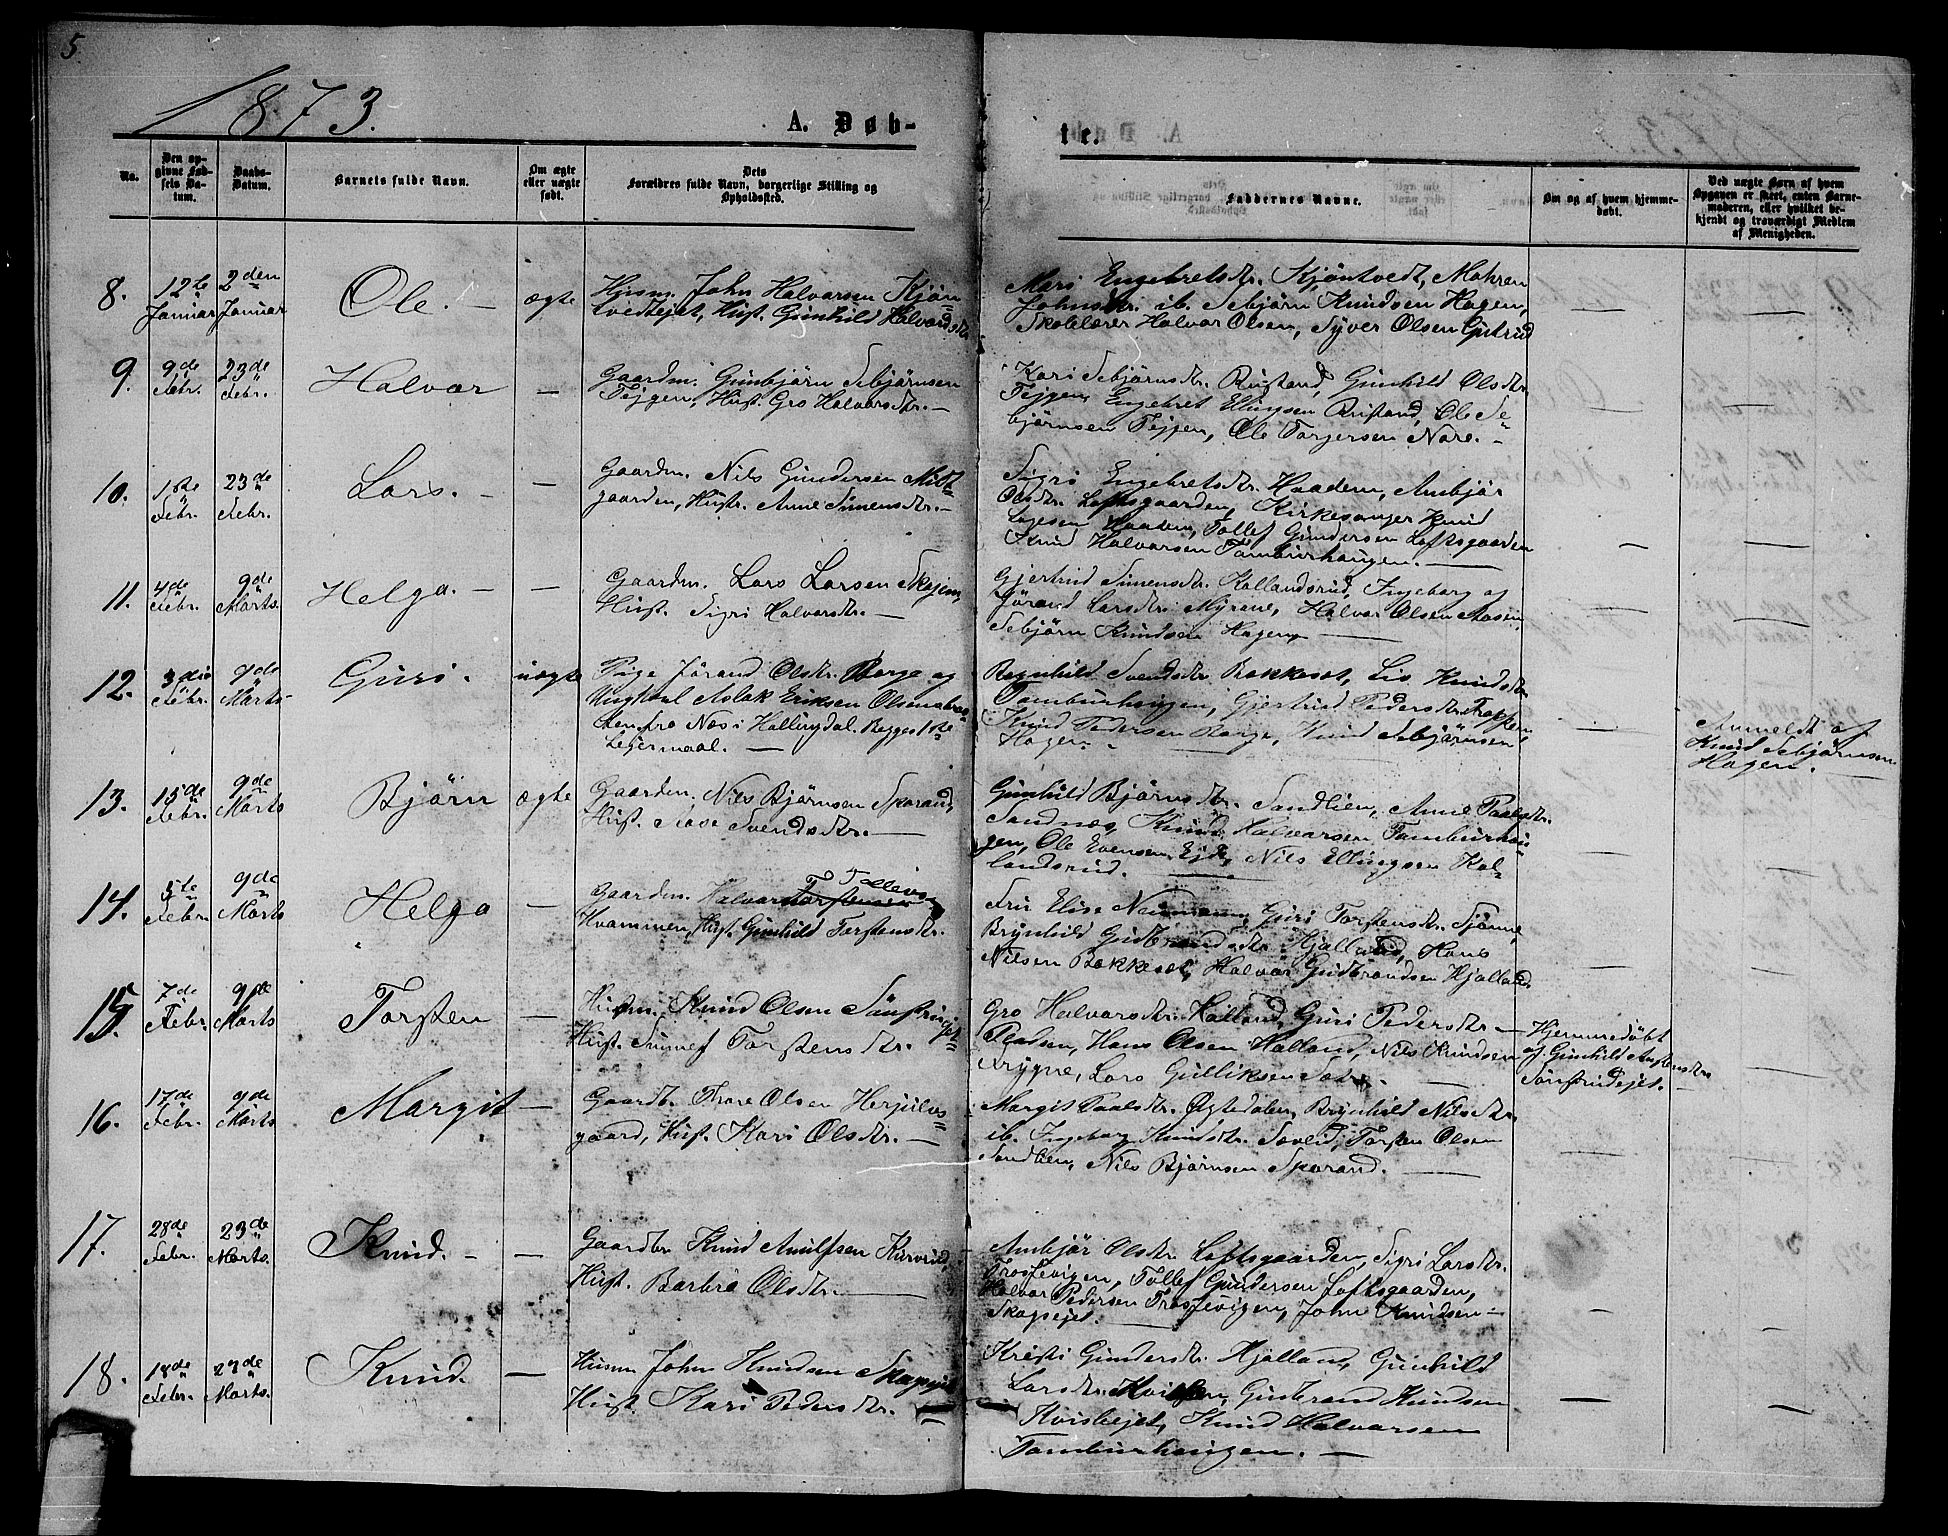 5.
1873.
A. Døb-
te.
No.
Den op-
givne Fød-
sels Da-
tum.
Daabs-
Datum.
Barnets fulde Navn.
Om ægte
eller uægte
født.
Dets
Forældres fulde Navn, borgerlige Stilling og
Opholdsted.
Faddernes Navne.
Om og af hvem hjemme-
døbt.
Ved uægte Børn af hvem
Opgaven er skeet, enten Barne-
moderen, eller hvilket be-
kjendt og troværdigt Medlem
af Menigheden.
8.
12te
Januar
2den
Januar
Ole. —
ægte
Husm. John Halvarsen Kjøn-
tvedtejet, Hust. Gunhild Halvardsdtr.
Mari Engebretsdtr. Kjöntvedt, Mahren
Johnsdtr. ib. Sebjörn Knudsen Hagen,
Skolelærer Halvar Olsen, Syver Olsen Gustrud
9.
9de
Febr.
23de
Febr.
Halvar
—
Gaardm. Gunbjörn Sebjörnsen
Tejgen, Hust. Gro Halvarsdtr. —
Kari Sebjörnsdtr. Rustand, Gunhild Olsdtr.
Tejgen, Engebret Ellingsen Rustand, Ole Se-
björnsen Tejgen, Ole Torgersen Nore. —
10.
1ste
Febr.
23de
Febr.
Lars. —
—
Gaardm. Nils Gundersen Midt-
gaarden, Hust. Anne Simensdtr. —
Sigri Engebretsdtr. Haadem, Ambjör
Olsdtr. Loftsgaarden, Kirkesanger Knud
Haadem, Tollef Gundersen Loftsgaarden
Knud Halvarsen Tamburhaugen. —
11.
4de
Febr.
9de
Marts.
Helga. —
—
Gaardm. Lars Larsen Skajem,
Hust. Sigri Halvarsdtr. —
Gjertrud Simensdtr. Kallandsrud, Ingeborg og
Jörand Larsdtr. Myrene, Halvar Olsen Aasen,
Sebjörn Knudsen Hagen, —
12.
3die
Febr.
9de
Marts
Guri.
uægte
Pige Jörand Olsdtr. Borge og
Ungkarl Aslak Eriksen
fra Næs i Hallingdal. Begges 1ste
Leiermaal. —
Svendsdtr. Bakkesæt, Liv Knudsdtr.
Tamburhaugen, Gjertrud Pedersdtr.
Knud Pedersen Borge, Knud Sebjörnsen
Hagen. —
Anmeldt af
Knud Sebjörnsen
Hagen.
13.
15de
Febr.
9de
Marts
Björn
ægte
Gaardm. Nils Björnsen Sporand,
Hust. Svendsdtr. —
Gunhild Björnsdtr. Sandlien, Anne Paalsdtr.
Sandnæs, Knud Halvarsen Tamburhau-
gen, Ole Evensen Ejde, Nils Ellingsen Kal-
landsrud. —
14.
5te
Febr.
9de
Marts
Helga
—
Gaardm. Halvar Torstensen Tollevsen
Kvammen, Hust. Gunhild Torstensdtr.
Fru Elise Neumann, Guri Torstensdtr. Sjönne,
Brynhild Gudbrandsdtr. Hjalland, Hans
Nilsen Bakkesæt, Halvar Gudbrandsen Hjalland.
15.
7de
Febr.
9de
Marts
Torsten
—
Husm. Knud Olsen
Hust. Torstensdtr.
Gro Halvarsdtr. Halland, Guri Pedersdtr. —
Hans Olsen Halland, Nils Knudsen
Lars Gulliksen —
Hjemmedøbt
af Gunhild
16.
17de
Febr.
9de
Marts
Margit —
Gaardbr. Tore Olsen Herjulvs-
gaard, Hust. Kari Olsdtr. —
Margit Paalsdtr. Øygtedalen, Brynhild Nilsdtr.
ib. Ingeborg Knudsdtr. Torsten Olsen
Sandlien, Nils Björnsen Sporand.
17.
28de
Febr.
23de
Marts.
Knud. —
—
Gaardbr. Knud Arnulfsen Kurvrud,
Hust. Barbra Olsdtr. —
Ambjör Olsdtr. Loftsgaarden, Sigri Larsdtr.
Trosfevigen, Tollef Gundersen Loftsgaarden,
Halvar Pedersen Trosfevigen, John Knudsen —
Skagsejet. —
18.
18de
Febr.
23de
Marts.
Knud.
—
Husm. John Knudsen Skagsejet
Hust. Kari Pedersdtr. —
Kristi Gundersdtr. Hjalland, Gunhild
Larsdtr. Gudbrand Knudsen
Kvislejet, Knud Halvarsen
Tamburhaugen. —